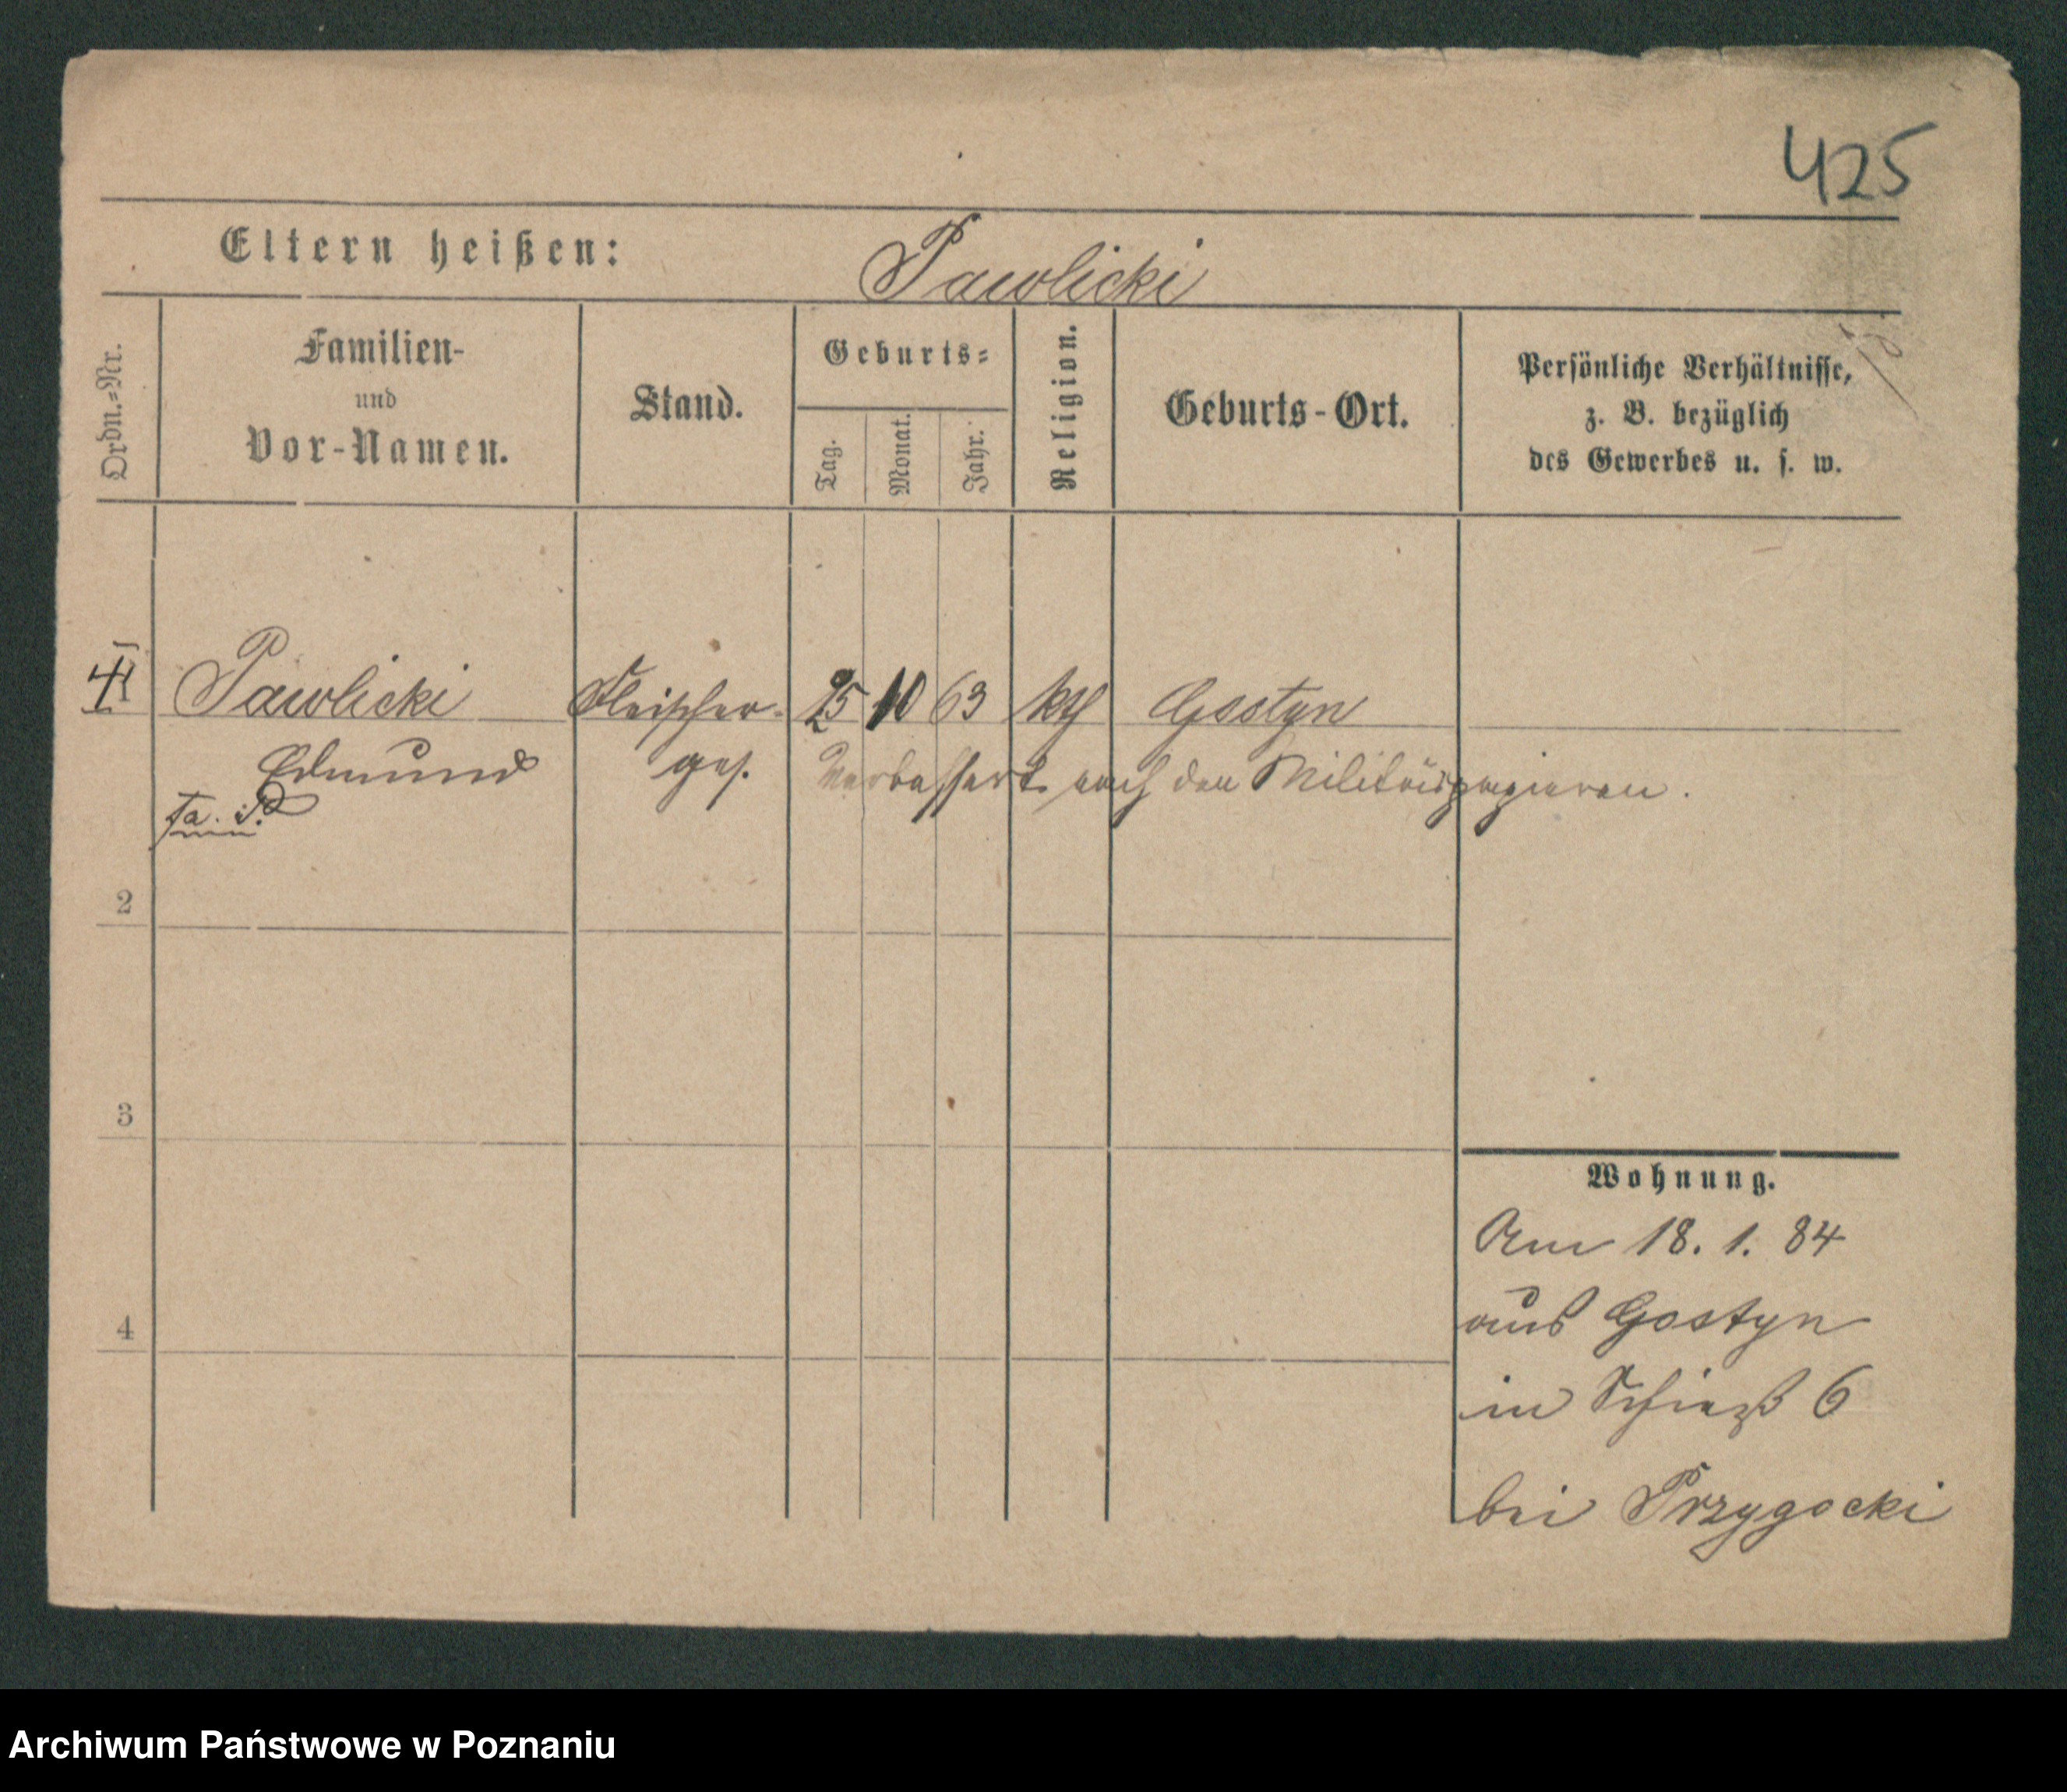 425
Eltern heißen: Pawlicki
Ordn.=Nr.
Familien-
und
Vor-Namen.
Stand.
Geburts=
Tag.
Monat.
Jahr.
Religion.
Geburts-Ort.
Persönliche Verhältnisse,
z. B. bezüglich
des Gewerbes u. s. w.
Pawlicki Fleischer- 25 10 63 kth Gostyn
Edmund ges. Verbessert nach den Militärpapieren.
2
3
4
Wohnung.
Am 18. 1. 84
aus Gostyn
in Schieß 6
bei Przygocki
Archiwum Państwowe w Poznaniu